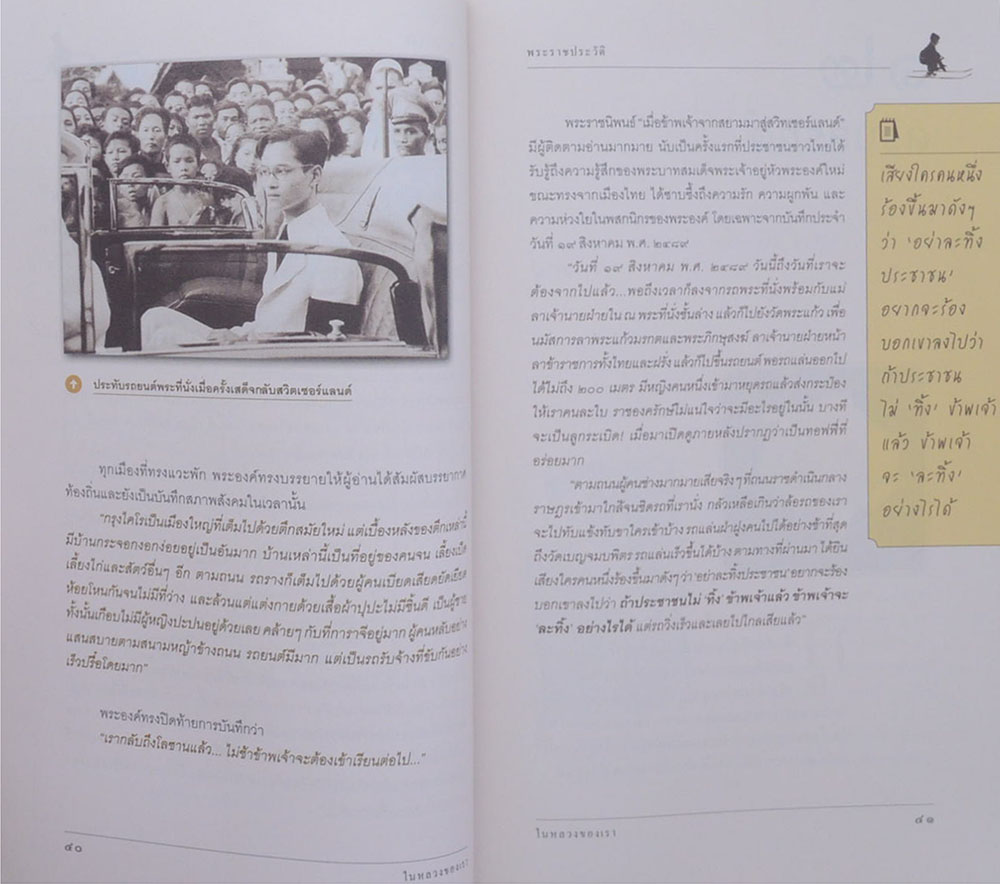 ประทับรถยนต์พระที่นั่งเมื่อครั้งเสด็จกลับสวิตเซอร์แลนด์
ทุกเมืองที่ทรงแวะพัก พระองค์ทรงบรรยายให้ผู้อ่านได้สัมผัสบรรยากาศ
ท้องถิ่นและยังเป็นบันทึกสภาพสังคมในเวลานั้น
“กรุงไคโรเป็นเมืองใหญ่ที่เต็มไปด้วยตึกสมัยใหม่ แต่เบื้องหลังของตึกเหล่านี้
มีบ้านกระจอกงอกง่อยอยู่เป็นอันมาก บ้านเหล่านี้เป็นที่อยู่ของคนจน เลี้ยงเป็ด
เลี้ยงไก่และสัตว์อื่นๆ อีก ตามถนน รถรางก็เต็มไปด้วยผู้คนเบียดเสียดยัดเยียด
ห้อยโหนกันจนไม่มีที่ว่าง และล้วนแต่แต่งกายด้วยเสื้อผ้าปุปะไม่มีชิ้นดี เป็นผู้ชาย
ทั้งนั้นเกือบไม่มีผู้หญิงปะปนอยู่ด้วยเลย คล้ายๆ กับที่การาจีอยู่มาก ผู้คนหลับอย่าง
แสนสบายตามสนามหญ้าข้างถนน รถยนต์มีมาก แต่เป็นรถรับจ้างที่ขับกันอย่าง
เร็วปรื๋อโดยมาก”
พระองค์ทรงปิดท้ายการบันทึกว่า
“เรากลับถึงโลซานแล้ว... ไม่ช้าข้าพเจ้าจะต้องเข้าเรียนต่อไป...”
๔๐
ในหลวงของเรา
พระราชประวัติ
พระราชนิพนธ์ “เมื่อข้าพเจ้าจากสยามมาสู่สวิทเซอร์แลนด์”
มีผู้ติดตามอ่านมากมาย นับเป็นครั้งแรกที่ประชาชนชาวไทยได้
รับรู้ถึงความรู้สึกของพระบาทสมเด็จพระเจ้าอยู่หัวพระองค์ใหม่
ขณะทรงจากเมืองไทย ได้ซาบซึ้งถึงความรัก ความผูกพัน และ
ความห่วงใยในพสกนิกรของพระองค์ โดยเฉพาะจากบันทึกประจำ
วันที่ ๑๙ สิงหาคม พ.ศ. ๒๔๘๙
“วันที่ ๑๙ สิงหาคม พ.ศ. ๒๔๘๙ วันนี้ถึงวันที่เราจะ
ต้องจากไปแล้ว...พอถึงเวลาก็ลงจากรถพระที่นั่งพร้อมกับแม่
ลาเจ้านายฝ่ายใน ณ พระที่นั่งชั้นล่าง แล้วก็ไปยังวัดพระแก้ว เพื่อ
นมัสการลาพระแก้วมรกตและพระภิกษุสงฆ์ ลาเจ้านายฝ่ายหน้า
ลาข้าราชการทั้งไทยและฝรั่ง แล้วก็ไปขึ้นรถยนต์ พอรถแล่นออกไป
ได้ไม่ถึง ๒๐๐ เมตร มีหญิงคนหนึ่งเข้ามาหยุดรถแล้วส่งกระป๋อง
ให้เราคนละใบ ราชองครักษ์ไม่แน่ใจว่าจะมีอะไรอยู่ในนั้น บางที
จะเป็นลูกระเบิด! เมื่อมาเปิดดูภายหลังปรากฏว่าเป็นทอฟฟี่ที่
อร่อยมาก
“ตามถนนผู้คนช่างมากมายเสียจริงๆ ที่ถนนราชดำเนินกลาง
ราษฎรเข้ามาใกล้จนชิดรถที่เรานั่ง กลัวเหลือเกินว่าล้อรถของเรา
จะไปทับแข้งทับขาใครเข้าบ้าง รถแล่นฝ่าฝูงคนไปได้อย่างช้าที่สุด
ถึงวัดเบญจมบพิตร รถแล่นเร็วขึ้นได้บ้าง ตามทางที่ผ่านมา ได้ยิน
เสียงใครคนหนึ่งร้องขึ้นมาดังๆ ว่า ‘อย่าละทิ้งประชาชน’ อยากจะร้อง
บอกเขาลงไปว่า ถ้าประชาชนไม่ ‘ทิ้ง’ ข้าพเจ้าแล้ว ข้าพเจ้าจะ
‘ละทิ้ง’ อย่างไรได้ แต่รถวิ่งเร็วและเลยไปไกลเสียแล้ว”
เสียงใครคนหนึ่ง
ร้องขึ้นมาดังๆ
ว่า ‘อย่าละทิ้ง
ประชาชน’
อยากจะร้อง
บอกเขาลงไปว่า
ถ้าประชาชน
ไม่ ‘ทิ้ง’ ข้าพเจ้า
แล้ว ข้าพเจ้า
จะ ‘ละทิ้ง’
อย่างไรได้
ในหลวงของเรา
๔๑